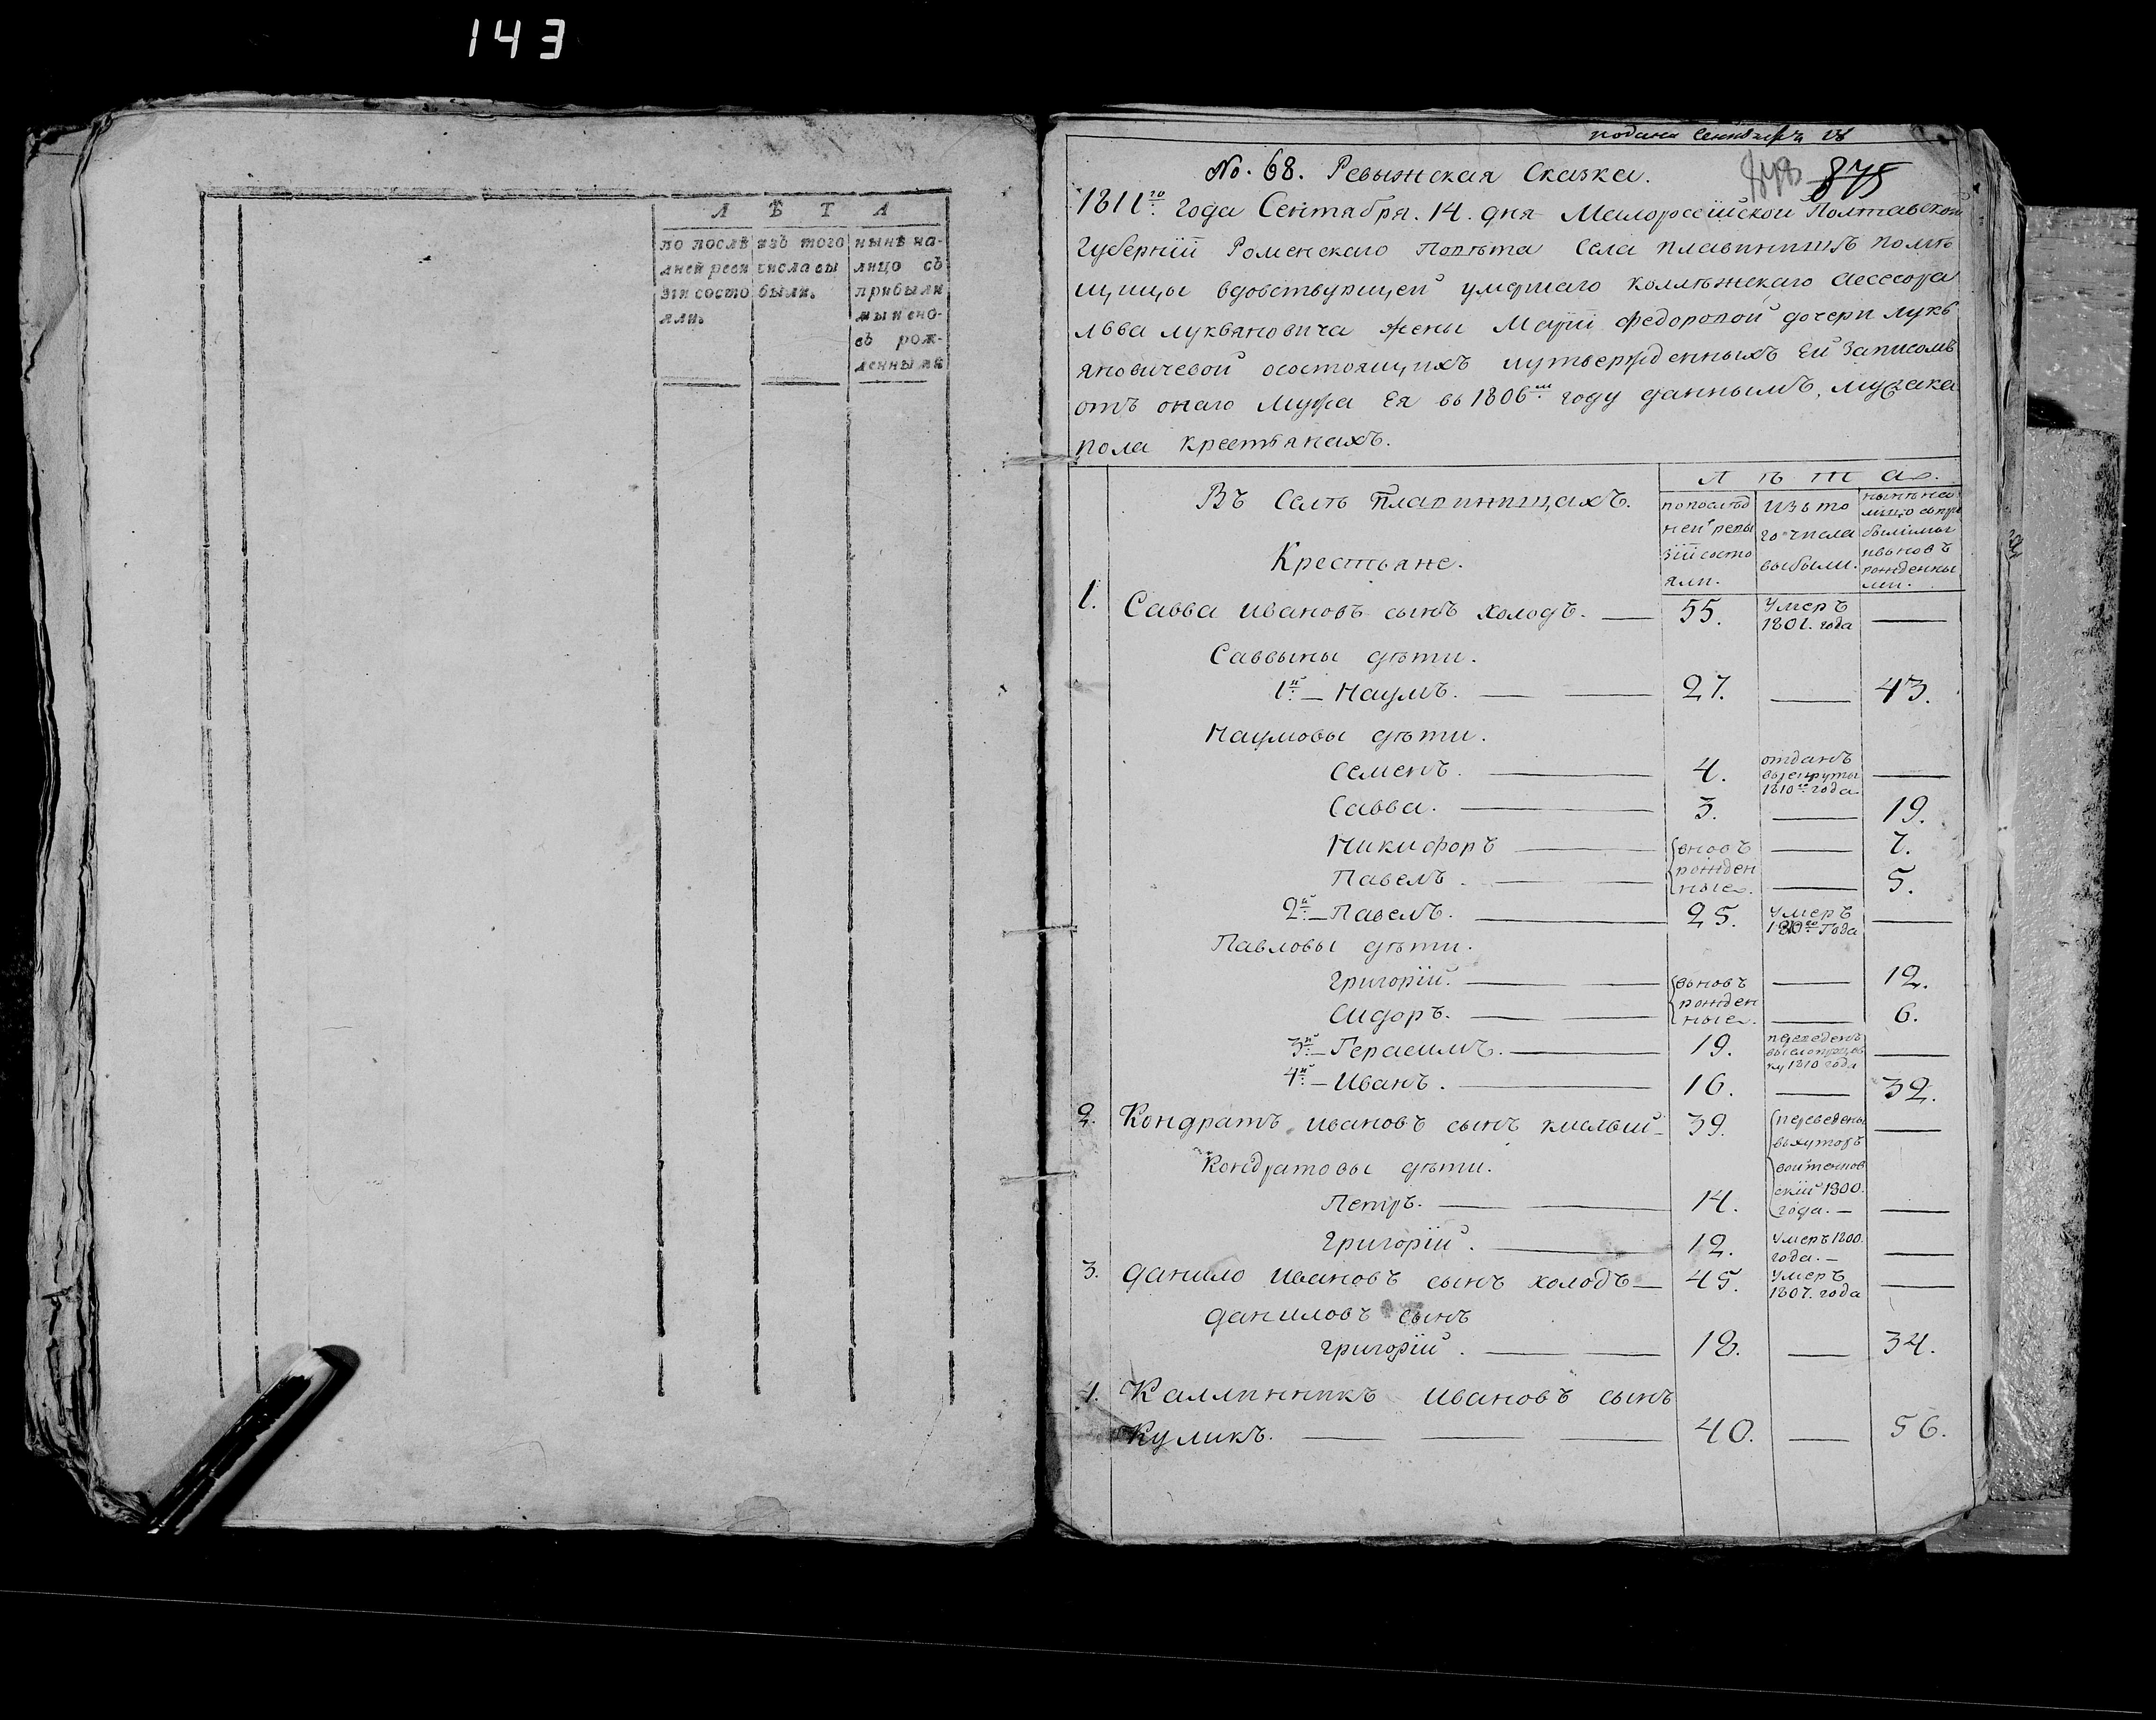 143
Л Ѣ Т А
по послѣ
дней реви
зіи состо
яли.
изъ того
числа вы
были.
нынѣ на-
лицо съ
прибыли
ми и вно-
вь рож-
денными
подана Сентября 18
No. 68. Ревыжская Сказка. 875
1811го года Сентября. 14. дня Малороссійской Полтавской
Губерніи Роменскаго Повѣта Села плавинищъ помѣ
щицы вдовствующей умершаго коллѣжскаго Асессора
Львва лукьяновича жены Маріи федоровой дочери лукь
яновичевой осостоящихъ иутвержденныхъ Ей Записомъ
отъ онаго Мужа Ея въ 1806м году даннымъ, мужска
пола крестьянахъ.
Л ѣ т а.
Въ Селѣ плавинищахъ.
Крестьяне.
попослѣд
ней ревы
зіи состо
яли.
изъ то
го числа
выбыли.
нынѣ на
лицо съпри
былими
ивновъ
рожденны
ми.
1. Савва Ивановъ сынъ холодъ. — 55. Умеръ 1801. года —
Саввины дѣти.
1й — Наумъ. — 27. — 43.
Наумовы дѣти.
Семенъ. — 4. отданъ врекруты 1810го года —
Савва. — 3. — 19.
Никифоръ — вновъ — 7.
Павелъ. — рожденные. — 5.
2й — Павелъ. — 25. Умеръ 1810го Года —
Павловы дѣти.
Григорій. — вновъ — 12.
Сидоръ. — рожденные. — 6.
3й — Герасимъ. — 19. переведенъ 1810 года —
4й — Иванъ. — 16. — 32.
2. Кондратъ Ивановъ сынъ — 39. переведены вхуторъ —
Кондратовы дѣти.
войтенов
Петръ. — 14. скій 1800. года. — —
Григорій. — 12. Умеръ 1800. года. — —
3. Данило Ивановъ сынъ холодъ — 45. Умеръ 1807. года —
Даниловъ сынъ
Григорій. — 18. — 34.
4. Каллинникъ Ивановъ сынъ
Куликъ. — 40. — 56.